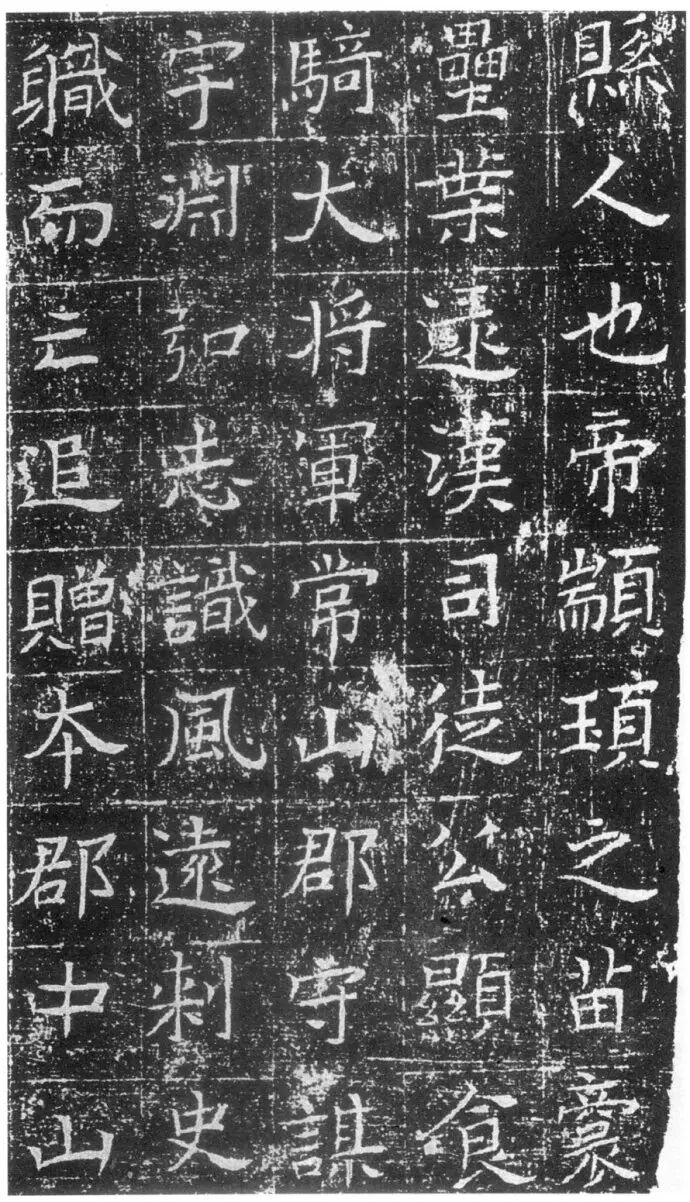 縣人也帝顓頊之苗裔
壘葉逮漢司徒公顯食
騎大将軍常山郡守謀
字淵弘識風遠刺史
軄而亡追贈本郡中山